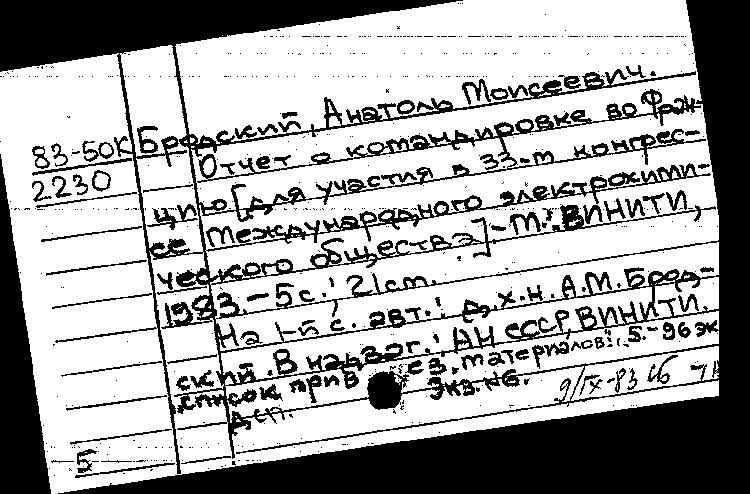 83-50К Бродский, Анатоль Моисеевич.
2230 Отчет о командировке во Фран-
цию [для участия в 33-м конгрес-
се Международного электрохими-
ческого общества] - М.: ВИНИТИ,
1983. - 5 с.; 21 cm.
На 1-й с. авт.: д.х.н. А.М. Брод-
ский. В надзаг.: АН СССР, ВИНИТИ.
Список прив ез. материалов: с.
Экз. №6.
ДСП.
9/IX-83